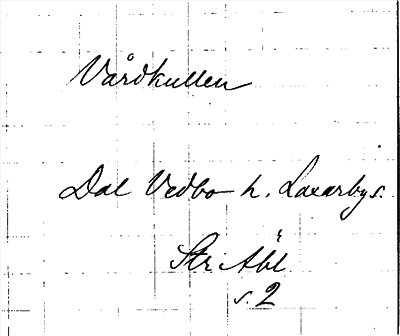 Vårdkullen
Dal Vedbo h. Laxarby s.
Str Åbl
s. 2